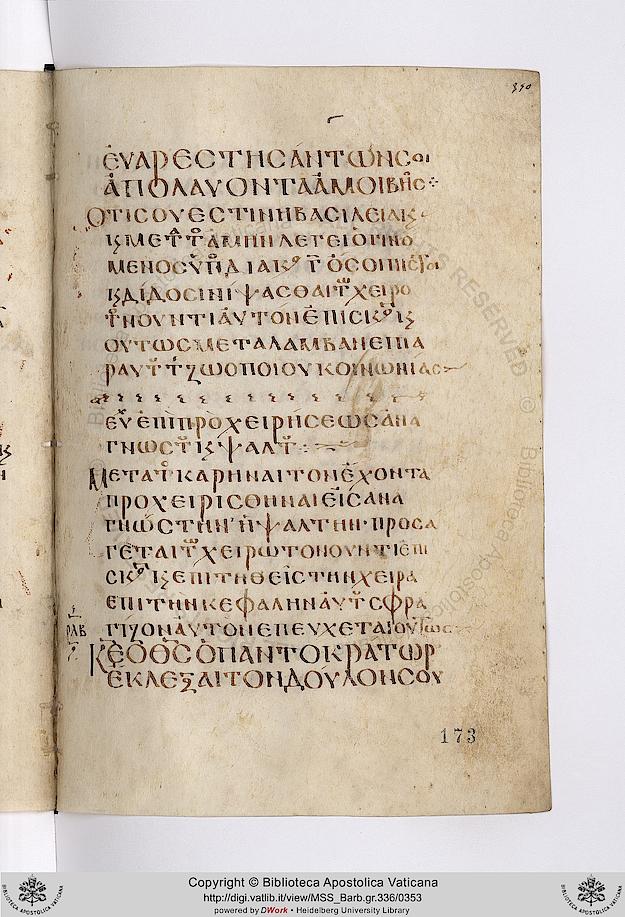 ΕΥΑΡΕΣΤΗΣΑΝΤΩΝΣΟΙ
ΑΠΟΛΑΥΟΝΤΑΑΜΟΙΒΗΣ
ΟΤΙΣΟΥΕΣΤΙΝΗΒΑΣΙΛΕΙΑΚ
ΜΕΝΟΣ
ΚΔΙΔΟΣΙΝΙΨΑΣΘΑΙ ΧΕΙΡΟ
ΤΝΟΥΝΤΙΑΥΤΟΝΕΠΙΣΚ
ΟΥΤΩΣΜΕΤΑΛΑΜΒΑΝΕΙΠΑ
ΡΑΥΤ ΖΩΟΠΟΙΟΥΚΟΙΝΩΝΙΑΣ
ΕΥΧ ΕΠΙΠΡΟΧΕΙΡΗΣΕΩΣΑΝΑ
ΓΝΩΣΤ Κ ΨΑΛΤ
ΜΕΤΑΤ ΚΑΡΗΝΑΙΤΟΝΕΧΟΝΤΑ
ΠΡΟΧΕΙΡΙΣΘΗΝΑΙΕΙΣΑΝΑ
ΓΝΩΣΤΗΝΗΨΑΛΤΗΝ·ΠΡΟΣΑ
ΓΕΤΑΙΤΩΧΕΙΡΩΤΟΝΟΥΝΤΙΕΠΙ
ΣΚ ΚΕΠΙΤΗΘΕΙΣΤΗΝΧΕΙΡΑ
ΕΠΙΤΗΝΚΕΦΑΛΗΝΑΥΤΣΦΡΑ
ΓΙΖΟΝΑΥΤΟΝΕΠΕΥΧΕΤΑΙΟΥΤΩΣ
ΚΕΟΘΣΟΠΑΝΤΟΚΡΑΤΩΡ
ΕΚΛΕΞΑΙΤΟΝΔΟΥΛΟΝΣΟΥ
173
Copyright © Biblioteca Apostolica Vaticana
http://digi.vatlib.it/view/MSS_Barb.gr.336/0353
powered by DWork • Heidelberg University Library